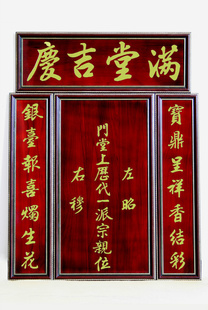 滿堂吉慶
寶鼎呈祥香結彩
左昭
門堂上歷代一派宗親位
右穆
銀臺報喜燭生花